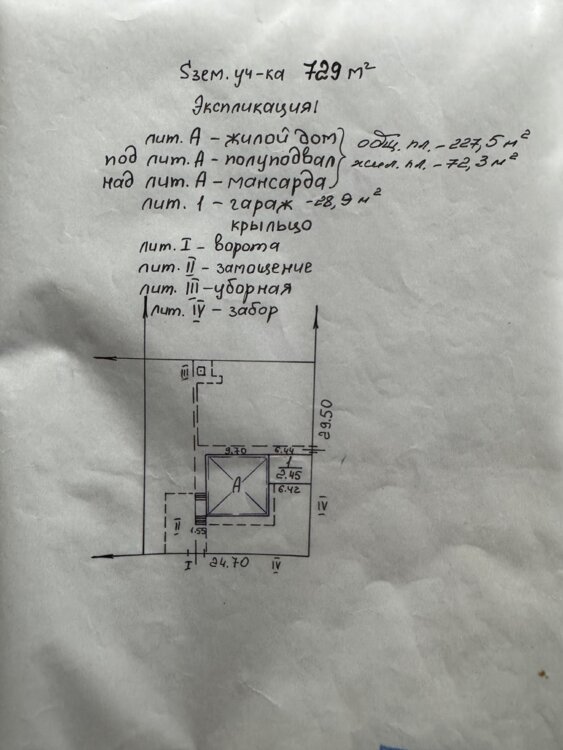 Sзем. уч-ка 729 м²
Экспликация
лит. А - жилой дом
под лит. А - полуподвал
над лит. А - мансарда
общ. пл. - 227,5 м²
жил. пл. - 72,3 м²
лит. 1 - гараж - 28,9 м²
крыльцо
лит. I - ворота
лит. II - замощение
лит. III - уборная
лит. IV - забор
III
29.50
9.70 6.44
1
2.45
А
6.42
IV
II
1.55
I 24.70 IV